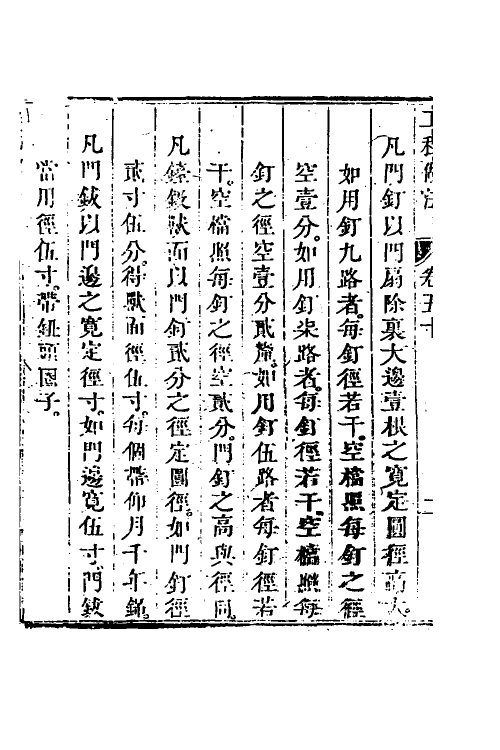 工程做法 卷五十 二
凡門釘以門扇除裏大邊壹根之寬定圓徑高大
如用釘九路者每釘徑若干空檔照每釘之徑
空壹分如用釘柒路者每釘徑若干空檔照每
釘之徑空壹分貳釐如用釘伍路者每釘徑若
干空檔照每釘之徑空貳分門釘之高與徑同
凡鋄鈸獸面以門釘貳分之徑定圓徑如門釘徑
貳寸伍分得獸面徑伍寸每個帶仰月千年鋦
凡門鈸以門邊之寬定徑寸如門邊寬伍寸門鈸
當用徑伍寸帶紐頭圈子